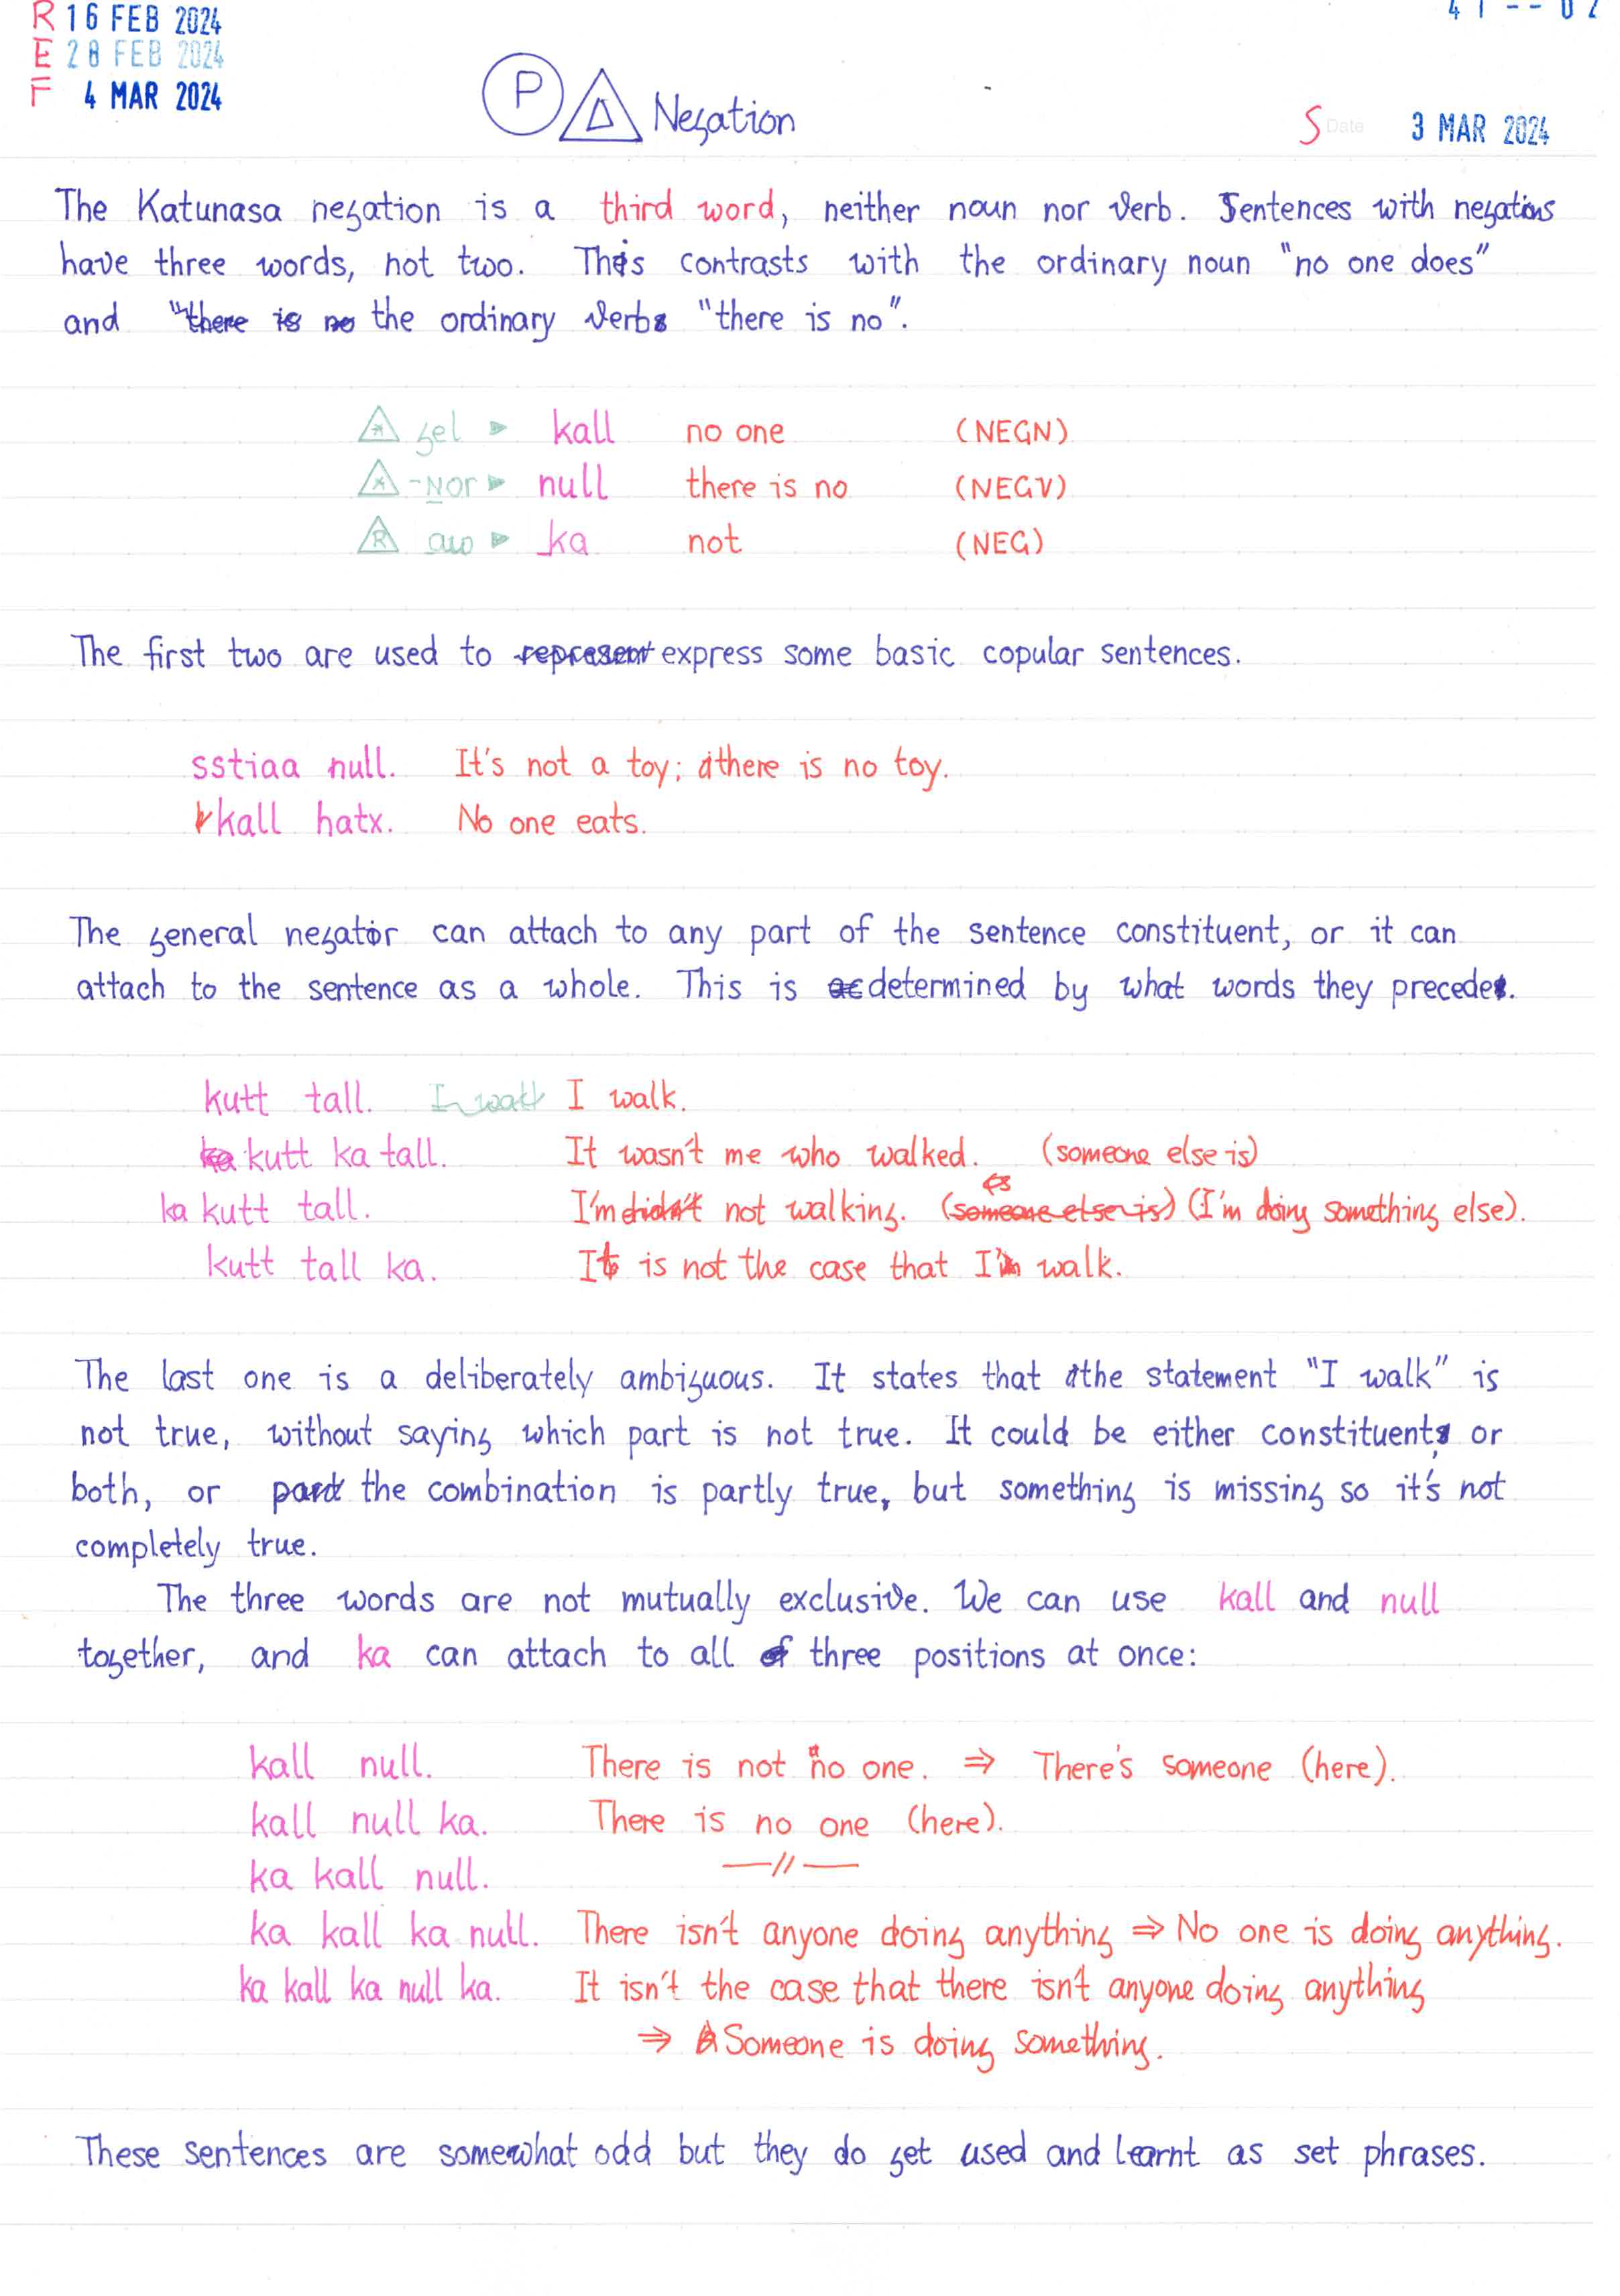 R 16 FEB 2024
E 28 FEB 2024
F 4 MAR 2024
P Δ Negation
S Date 3 MAR 2024
The Katunasa negation is a third word, neither noun nor verb. Sentences with negations
have three words, not two. This contrasts with the ordinary noun "no one does"
and "there is no the ordinary verbs "there is no".
gel ▶ kall no one (NEGN)
-NOR ▶ null there is no (NEGV)
R ▶ ka not (NEG)
The first two are used to represent express some basic copular sentences.
sstiaa null. It's not a toy; there is no toy.
kall hatx. No one eats.
The general negator can attach to any part of the sentence constituent, or it can
attach to the sentence as a whole. This is determined by what words they precede.
kutt tall. I walk I walk.
ka kutt ka tall. It wasn't me who walked. (someone else is)
ka kutt tall. I'm didn't not walking. (someone else is) (I'm doing something else).
kutt tall ka. It is not the case that I walk.
The last one is a deliberately ambiguous. It states that the statement "I walk" is
not true, without saying which part is not true. It could be either constituent, or
both, or part the combination is partly true, but something is missing so it's not
completely true.
The three words are not mutually exclusive. We can use kall and null
together, and ka can attach to all of three positions at once:
kall null. There is not no one. ⇒ There's someone (here).
kall null ka. There is no one (here).
ka kall null. —//—
ka kall ka null. There isn't anyone doing anything ⇒ No one is doing anything.
ka kall ka null ka. It isn't the case that there isn't anyone doing anything
⇒ Someone is doing something.
These sentences are somewhat odd but they do get used and learnt as set phrases.